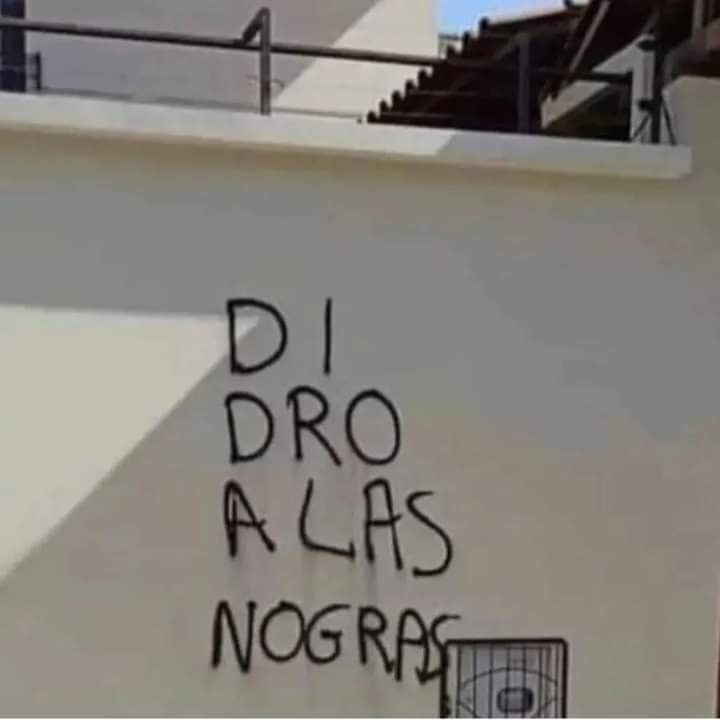 DI
DRO
A LAS
NOGRAS